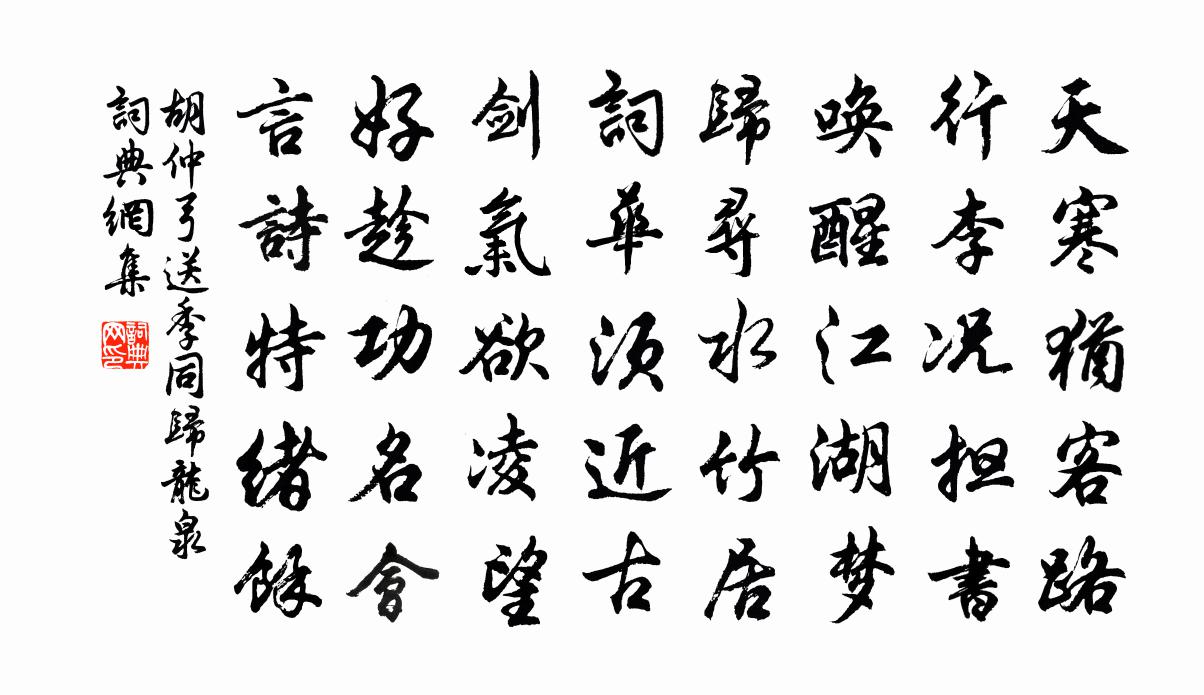 天寒猶客路
行李況担書
喚醒江湖梦
歸尋水竹居
詞華須近古
劍氣欲凌望
好趁功名會
言詩特緒餘
胡仲弓送季同歸龍泉
詞典網集
詞典网印